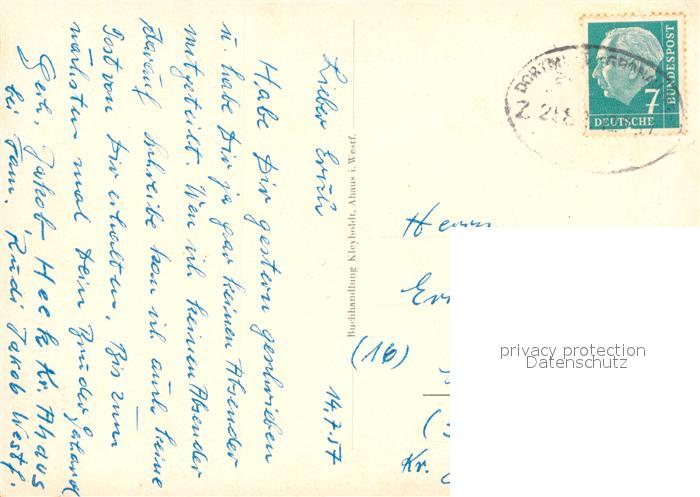 Lieber Erich 14.7.57
Habe Dir gestern geschrieben
u. habe Dir ja gar keinen Absender
mitgeteilt. Wen ich keinen Absender
darauf schreibe kan ich auch keine
Post von Dir erhalten. Bis zum
nächsten mal Dein Bruder Gerhard
Gerh. Jakob Heek Kr. Ahaus
bei Fam. Rudi Jakob Westf.
Buchhandlung Kleyboldt, Ahaus i. Westf.
DEUTSCHE
BUNDESPOST
7
DORTMUND
Z
Herrn
(16)
Kr.
privacy protection
Datenschutz